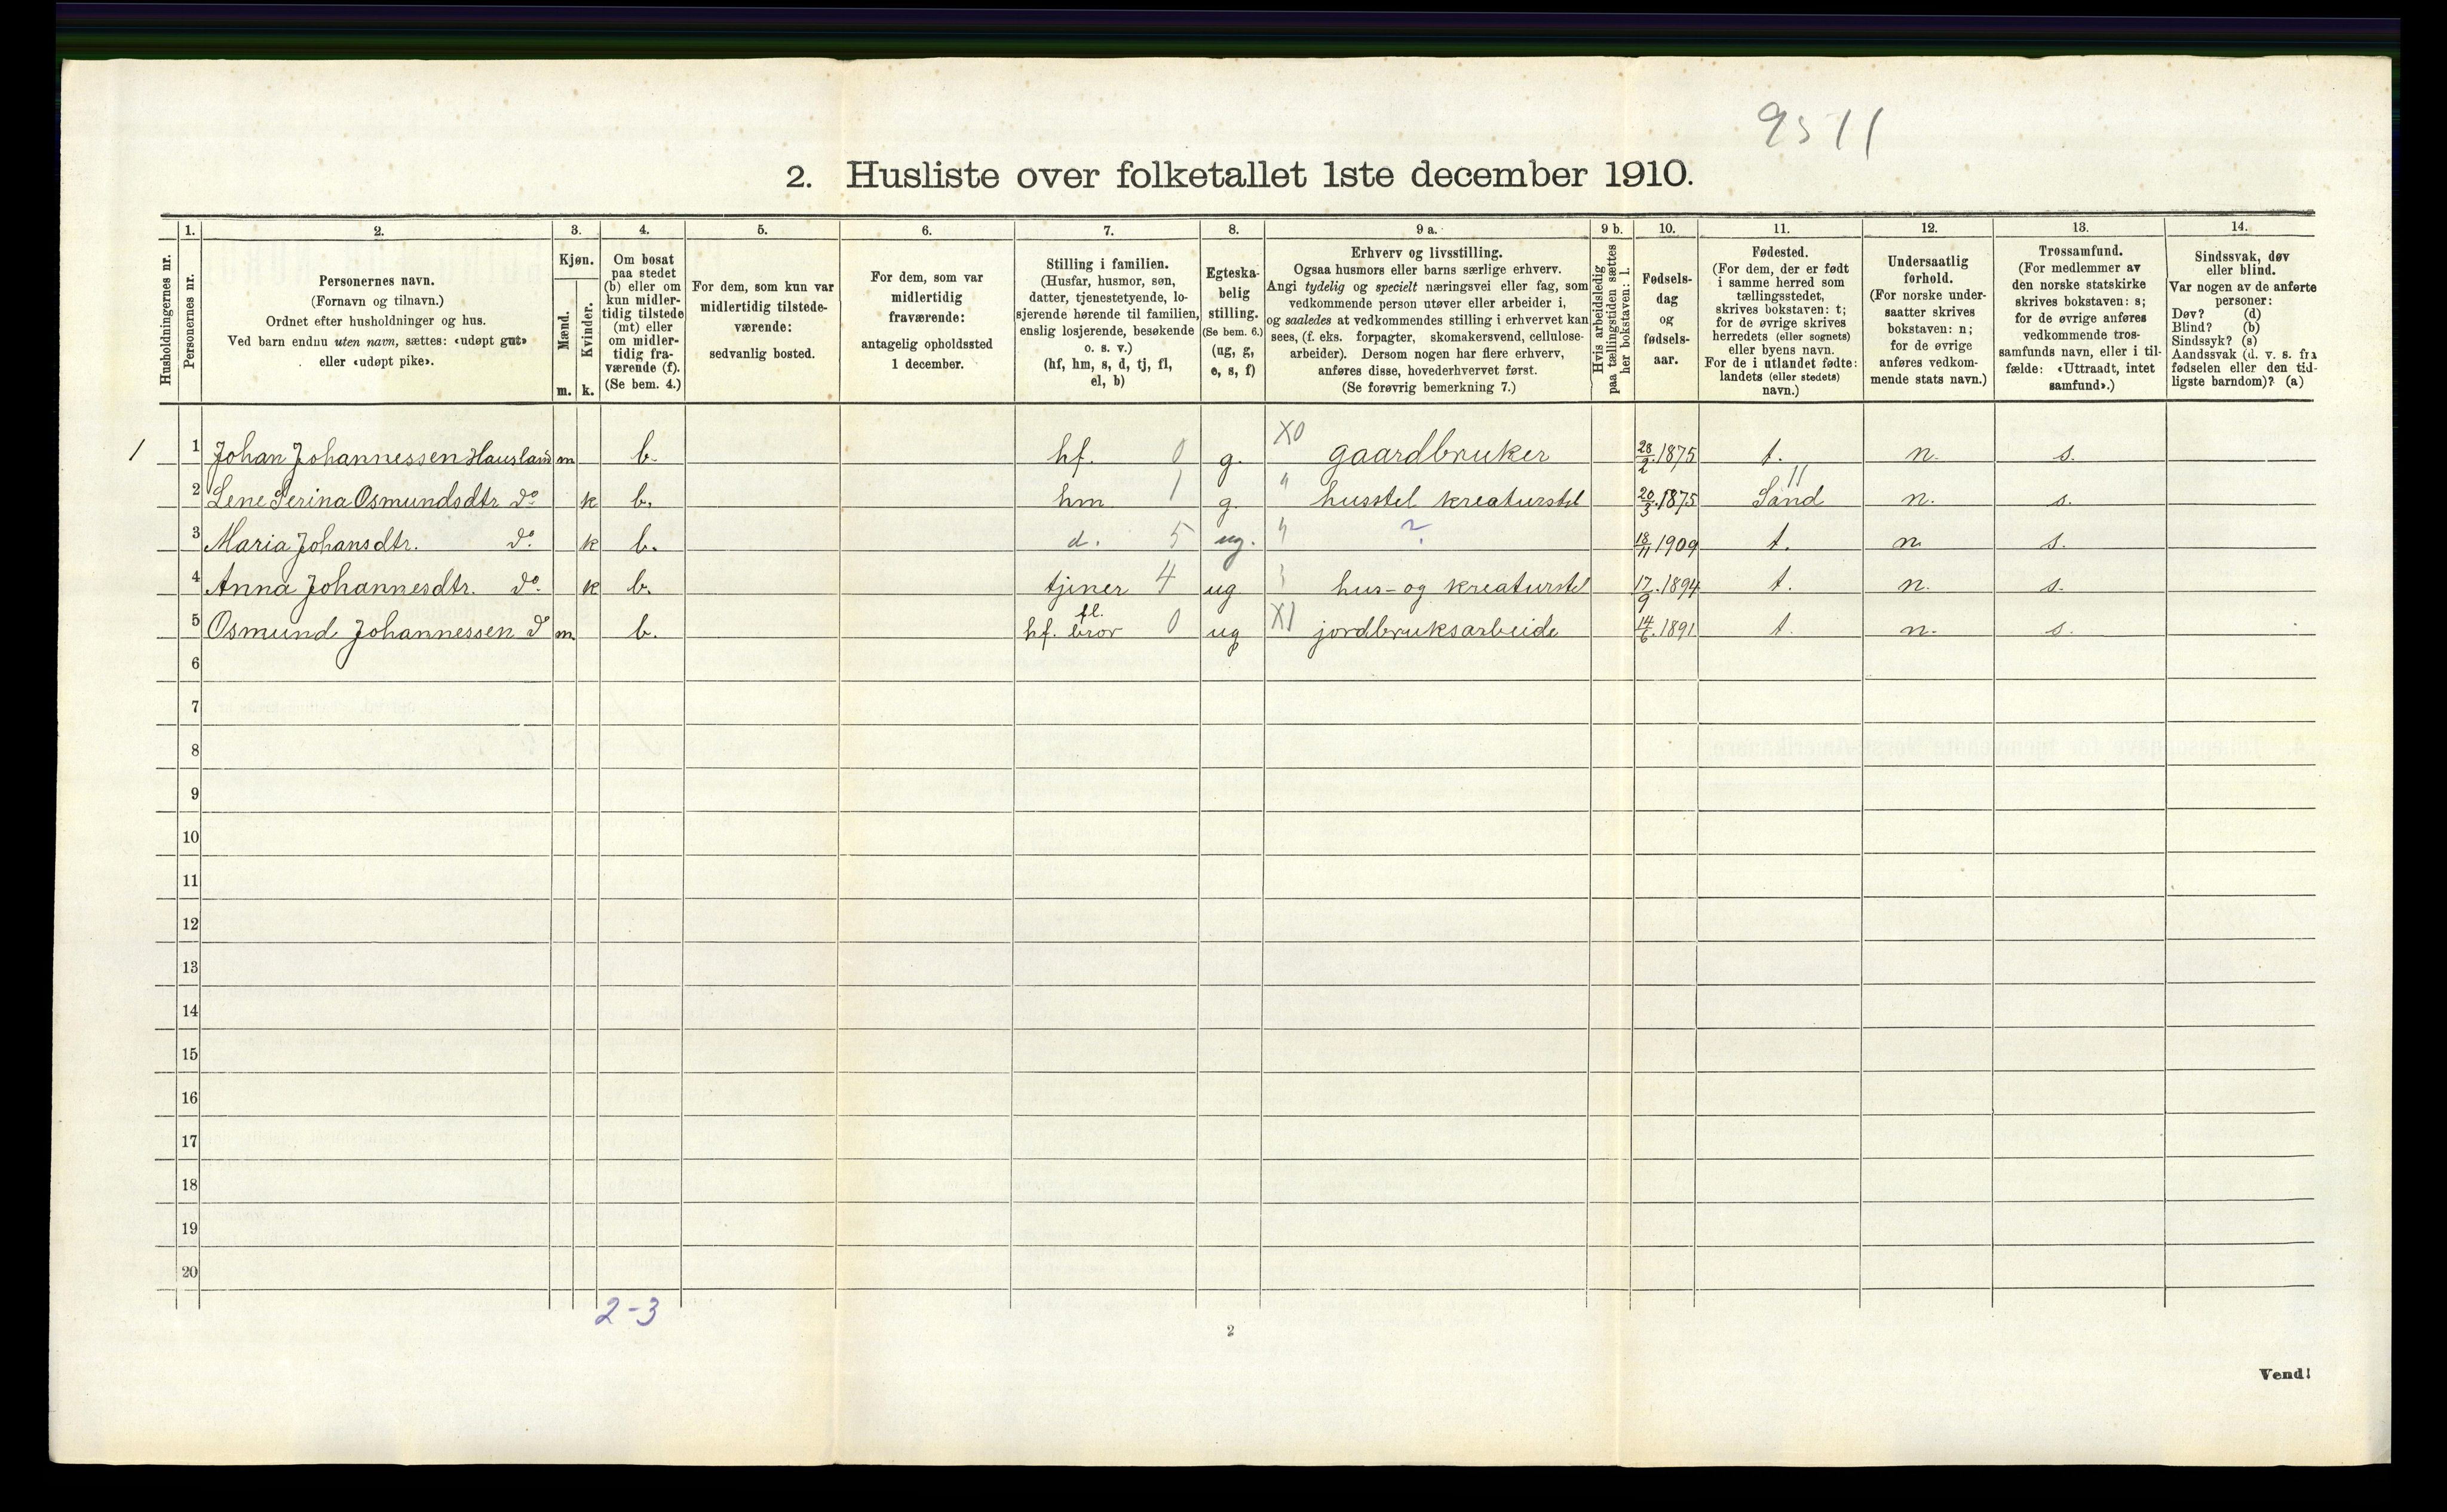 9511
2. Husliste over folketallet 1ste december 1910.
Husholdningernes nr.
1.
Personernes nr.
2.
Personernes navn.
(Fornavn og tilnavn.)
Ordnet efter husholdninger og hus.
Ved barn endnu uten navn, sættes: «udøpt gut»
eller «udøpt pike».
3.
Kjøn.
Mænd.
Kvinder.
m. k.
4.
Om bosat
paa stedet
(b) eller om
kun midler-
tidig tilstede
(mt) eller
om midler-
tidig fra-
værende (f).
(Se bem. 4.)
5.
For dem, som kun var
midlertidig tilstede-
værende:
sedvanlig bosted.
6.
For dem, som var
midlertidig
fraværende:
antagelig opholdssted
1 december.
7.
Stilling i familien.
(Husfar, husmor, søn,
datter, tjenestetyende, lo-
sjerende hørende til familien,
enslig losjerende, besøkende
o. s. v.)
(hf, hm, s, d, tj, fl,
el, b)
8.
Egteska-
belig
stilling.
(Se bem. 6.)
(ug, g,
e, s, f)
9 a.
Erhverv og livsstilling.
Ogsaa husmors eller barns særlige erhverv.
Angi tydelig og specielt næringsvei eller fag, som
vedkommende person utøver eller arbeider i,
og saaledes at vedkommendes stilling i erhvervet kan
sees, (f. eks. forpagter, skomakersvend, cellulose-
arbeider). Dersom nogen har flere erhverv,
anføres disse, hovederhvervet først.
(Se forøvrig bemerkning 7.)
9 b.
Hvis arbeidsledig
paa tællingstiden sættes
her bokstaven: l.
10.
Fødsels-
dag
og
fødsels-
aar.
11.
Fødested.
(For dem, der er født
i samme herred som
tællingsstedet,
skrives bokstaven: t;
for de øvrige skrives
herredets (eller sognets)
eller byens navn.
For de i utlandet fødte:
landets (eller stedets)
navn.)
12.
Undersaatlig
forhold.
(For norske under-
saatter skrives
bokstaven: n;
for de øvrige
anføres vedkom-
mende stats navn.)
13.
Trossamfund.
(For medlemmer av
den norske statskirke
skrives bokstaven: s;
for de øvrige anføres
vedkommende tros-
samfunds navn, eller i til-
fælde: «Uttraadt, intet
samfund».)
14.
Sindssvak, døv
eller blind.
Var nogen av de anførte
personer:
Døv? (d)
Blind? (b)
Sindssyk? (s)
Aandssvak (d. v. s. fra
fødselen eller den tid-
ligste barndom)? (a)
1 1 Johan Johannessen Hausland m b. hf. 0 g. X0 gaardbruker 28/2.1875 t. n. s.
2 Lene Serina Osmundsdtr do k b. hm 1 g. " husstel kreaturstel 20/3.1875 Sand 11 n. s.
3 Maria Johansdtr. do. k b. d. 5 ug. " ? 18/11 1909 t. n. s.
4 Anna Johannesdtr. do. k b. tjener 4 ug hus- og kreaturstel 17/9.1894 t. n. s.
5 Osmund Johannessen do m. b. hf. bror fl. 0 ug X1 jordbruksarbeide 14/6.1891 t. n. s.
6
7
8
9
10
11
12
13
14
15
16
17
18
19
20
2-3
2
Vend!